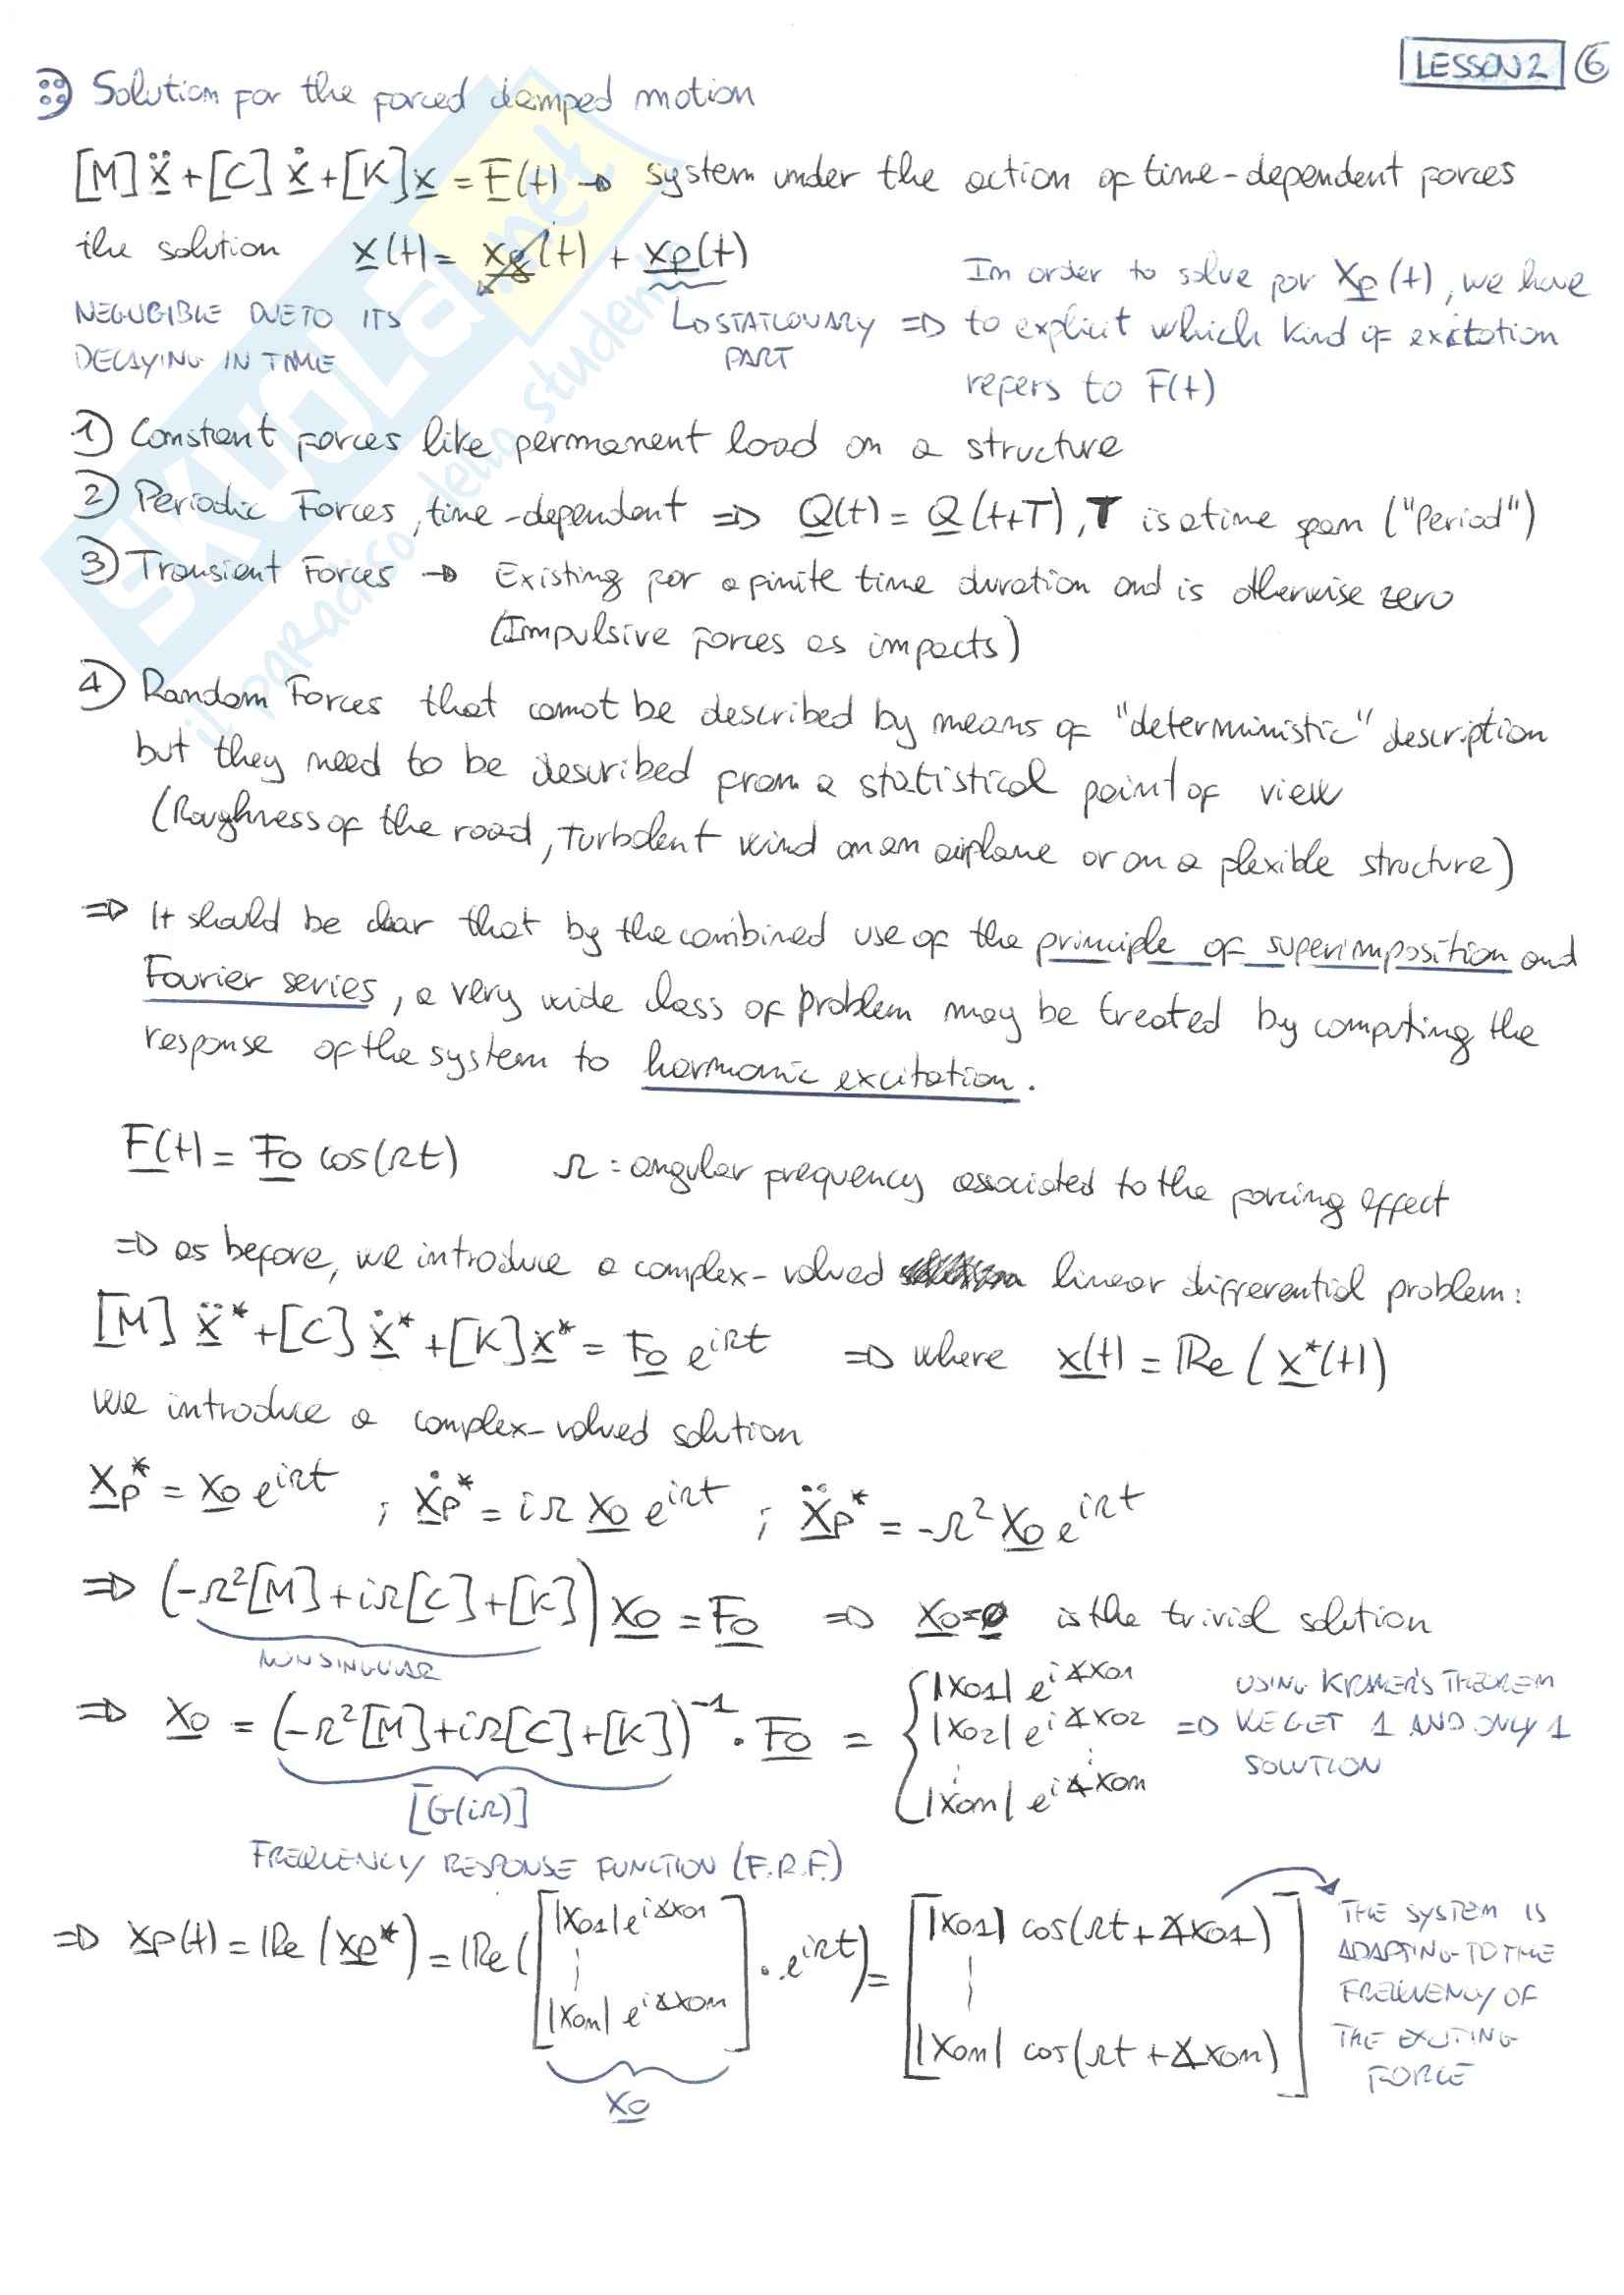 LESSON 2 6
Solution for the forced damped motion
[M]ẍ + [C]ẋ + [K]x = F(t) → system under the action of time-dependent forces
the solution x(t) = xg(t) + xp(t)
NEGLIGIBLE DUE TO ITS
DECAYING IN TIME
↳ STATIONARY PART ⇒
In order to solve for xp(t), we have
to explicit which kind of excitation
refers to F(t)
1) Constant forces like permanent load on a structure
2) Periodic Forces, time-dependent ⇒ Q(t) = Q(t+T), T is a time span ("Period")
3) Transient Forces → Existing for a finite time duration and is otherwise zero
(Impulsive Forces as impacts)
4) Random Forces that cannot be described by means of "deterministic" description
but they need to be described from a statistical point of view
(Roughness of the road, Turbolent wind on an airplane or on a flexible structure)
⇒ It should be clear that by the combined use of the principle of superimposition and
Fourier series, a very wide class of problem may be treated by computing the
response of the system to harmonic excitation.
F(t) = F0 cos(Ωt) Ω: angular frequency associated to the forcing effect
⇒ as before, we introduce a complex-valued linear differential problem:
[M]ẍ* + [C]ẋ* + [K]x* = F0 e^{iΩt} ⇒ where x(t) = Re(x*(t))
we introduce a complex-valued solution
xp* = x0 e^{iΩt} ; ẋp* = iΩ x0 e^{iΩt} ; ẍp* = -Ω² x0 e^{iΩt}
⇒ (-Ω²[M] + iΩ[C] + [K]) x0 = F0 ⇒ x0 = 0 is the trivial solution
NONSINGULAR
⇒ x0 = (-Ω²[M] + iΩ[C] + [K])⁻¹ · F0 = { |x01| e^{i∡x01}
|x02| e^{i∡x02}
⋮
|x0n| e^{i∡x0n}
⇒ USING KRAMER'S THEOREM
WE GET 1 AND ONLY 1
SOLUTION
[G(iΩ)]
FREQUENCY RESPONSE FUNCTION (F.R.F.)
⇒ xp(t) = Re(xp*) = Re([|x01| e^{i∡x01} ⋮ |x0n| e^{i∡x0n}] · e^{iΩt}) = [|x01| cos(Ωt + ∡x01) ⋮ |x0n| cos(Ωt + ∡x0n)]
x0
THE SYSTEM IS
ADAPTING TO THE
FREQUENCY OF
THE EXCITING
FORCE
SKUOLA.net
il paradiso dello studente